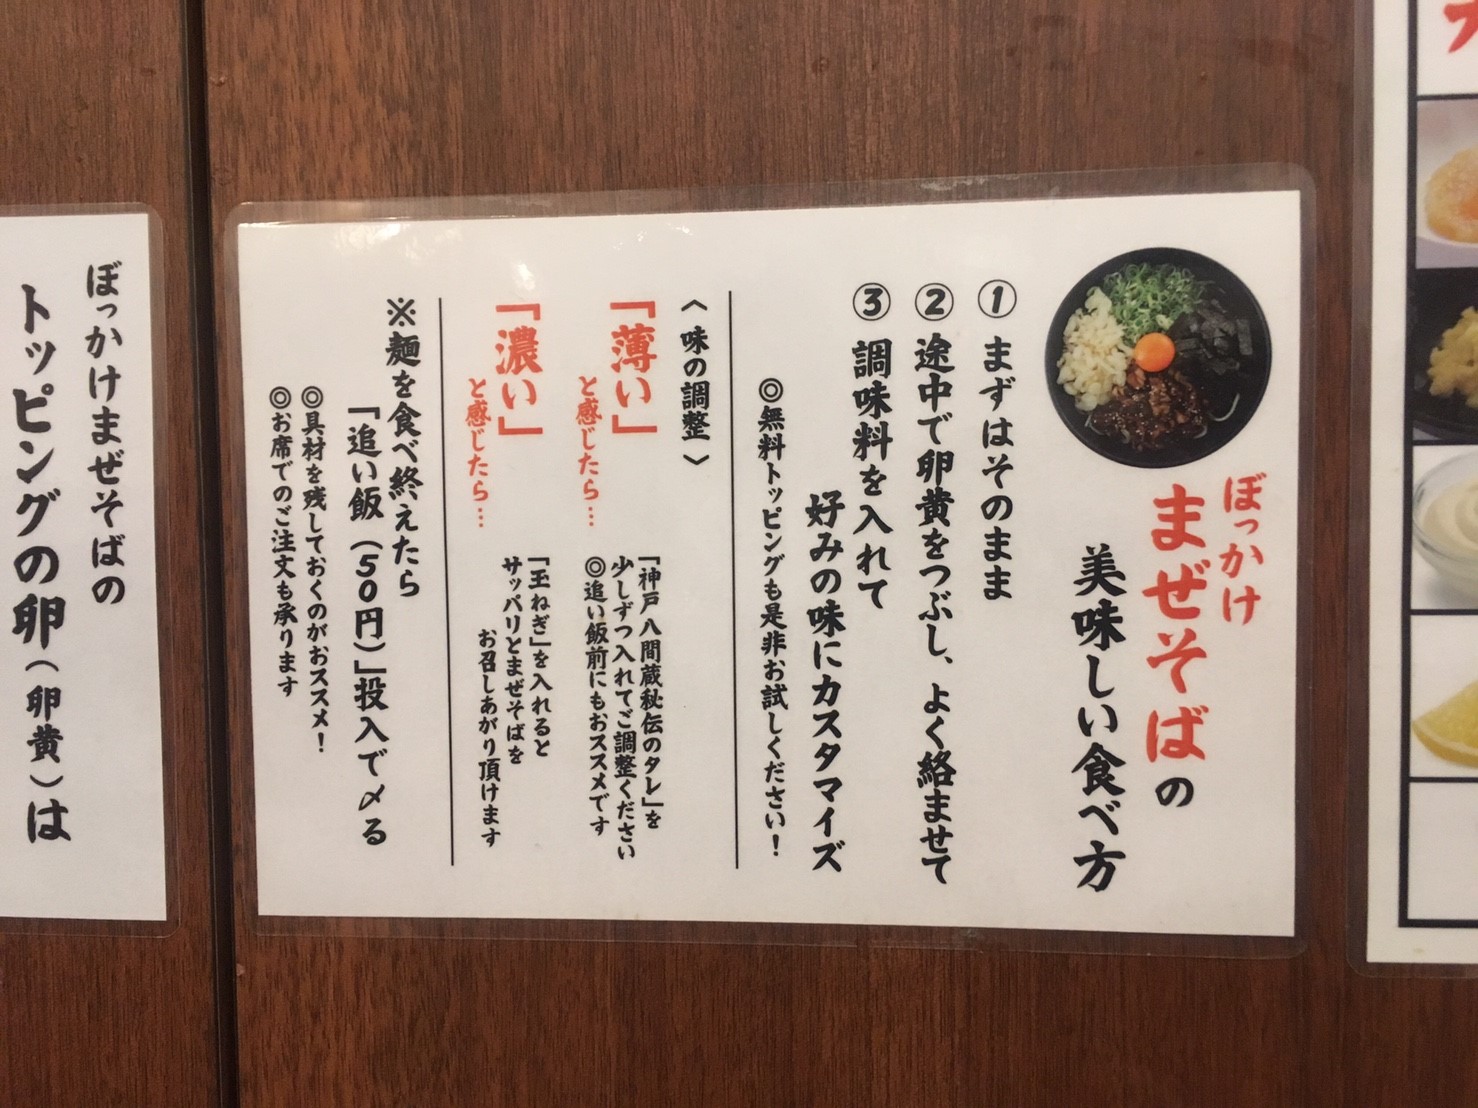 ぼっかけ
まぜそばの
美味しい食べ方
① まずはそのまま
② 途中で卵黄をつぶし、よく絡ませて
③ 調味料を入れて
好みの味にカスタマイズ
◎無料トッピングも是非お試しください！
〈味の調整〉
「薄い」
と感じたら…
「神戸八間蔵秘伝のタレ」を
少しずつ入れてご調整ください
◎追い飯前にもおススメです
「濃い」
と感じたら…
「玉ねぎ」を入れると
サッパリとまぜそばを
お召しあがり頂けます
※麺を食べ終えたら
「追い飯（50円）」投入で〆る
◎具材を残しておくのがおススメ！
◎お席でのご注文も承ります
ぼっかけまぜそばの
トッピングの卵（卵黄）は